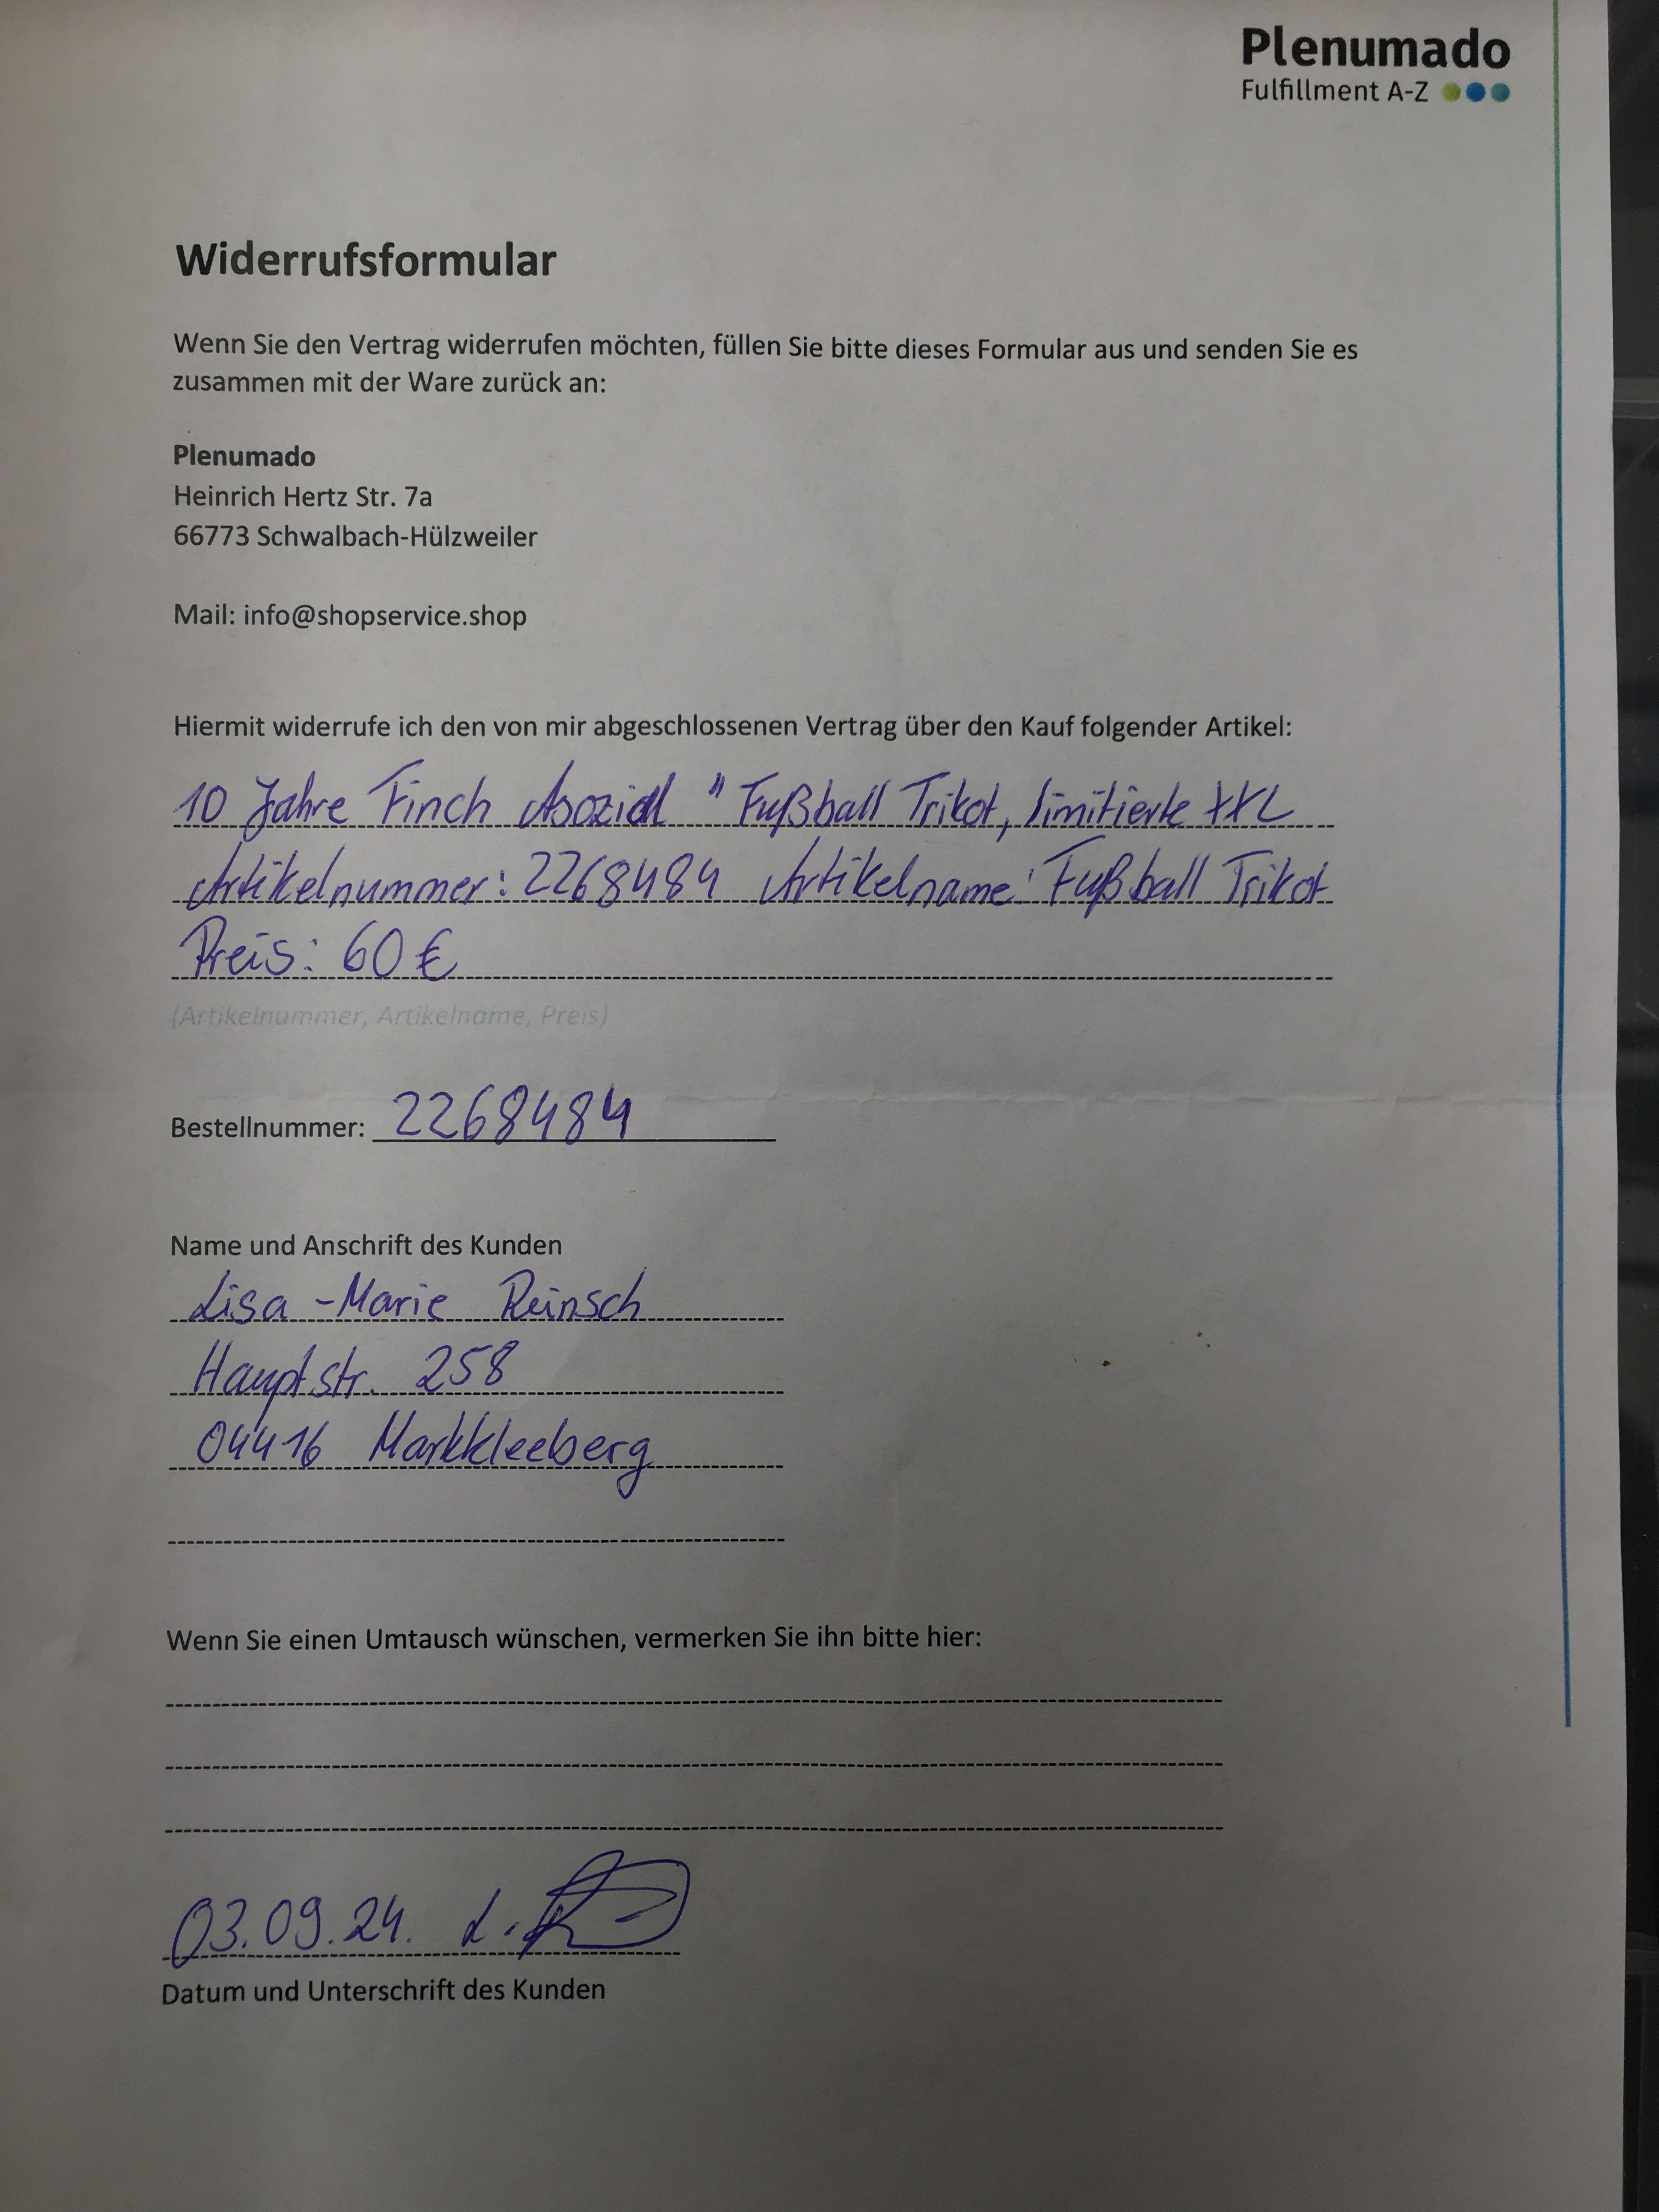 Plenumado
Fulfillment A-Z
Widerrufsformular
Wenn Sie den Vertrag widerrufen möchten, füllen Sie bitte dieses Formular aus und senden Sie es
zusammen mit der Ware zurück an:
Plenumado
Heinrich Hertz Str. 7a
66773 Schwalbach-Hülzweiler
Mail: info@shopservice.shop
Hiermit widerrufe ich den von mir abgeschlossenen Vertrag über den Kauf folgender Artikel:
10 Jahre Finch Asozial " Fußball Trikot, limitierte XXL
Artikelnummer: 2268484 Artikelname: Fußball Trikot
Preis: 60 €
(Artikelnummer, Artikelname, Preis)
Bestellnummer: 2268484
Name und Anschrift des Kunden
Lisa-Marie Reinsch
Hauptstr. 258
04416 Markkleeberg
Wenn Sie einen Umtausch wünschen, vermerken Sie ihn bitte hier:
03.09.24. L.
Datum und Unterschrift des Kunden